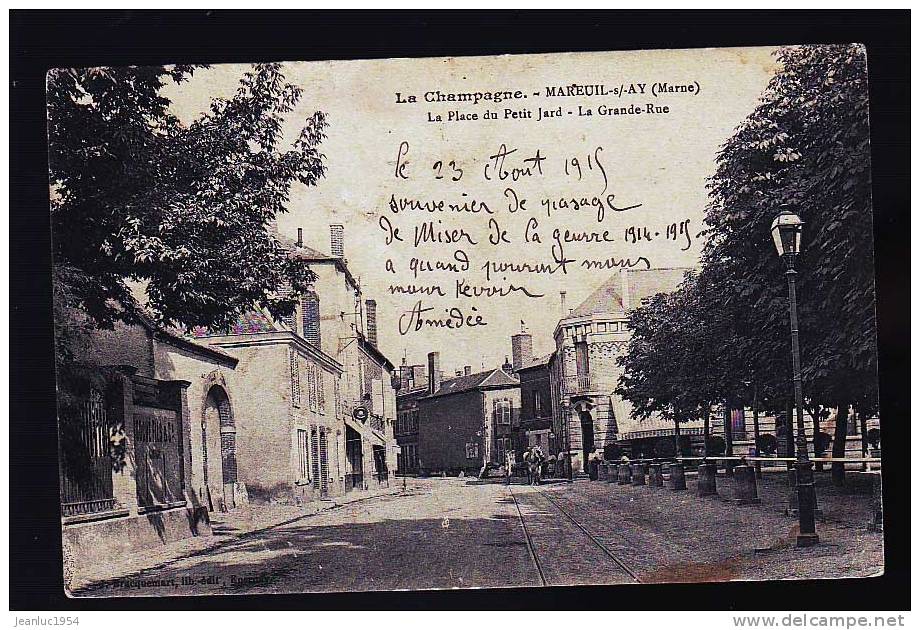 La Champagne. - MAREUIL-s/-AY (Marne)
La Place du Petit Jard - La Grande-Rue
le 23 Aout 1915
souvenier de pasage
de Miser de la geurre 1914-1915
a quand pouront mous
mour Revoir
Amedèe
Bracquemart, lib.-édit., Epernay
jeanluc1954
www.delcampe.net